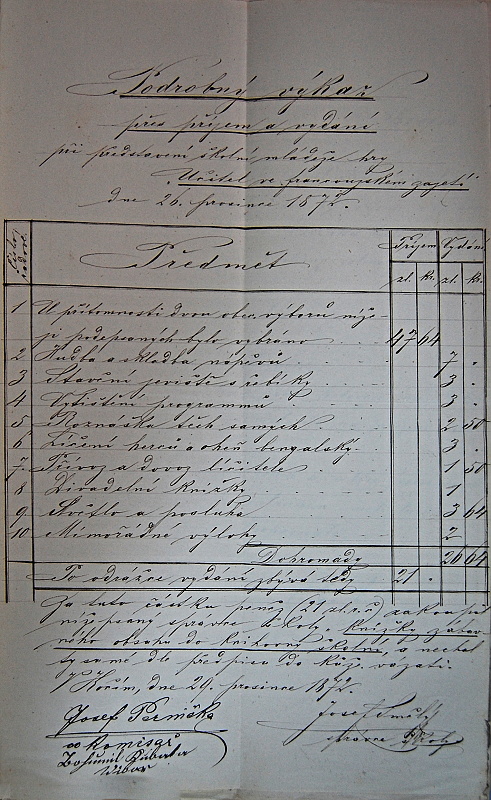 Podrobný výkaz
přes příjem a vydání
při představení školní mládeže hry
"Učitel ve francouzském zajetí"
dne 26. prosince 1872.
Číslo řadové Předmět Příjem Vydání
zl. kr. zl. kr.
1 U přítomnosti dvou obec. výborů níže
ji podepsaných bylo vybráno 47 64
2 Hudba a skladba nápěvů 7 .
3 Stavění jeviště s řebíky 3 .
4 Vytištění programmů 3 .
5 Roznáška těch samých 2 50
6 Líčení herců a oheň bengalský 3 .
7 Přívoz a dovoz líčitele 1 50
8 Divadelní knížky 1 .
9 Světlo a posluha 3 64
10 Mimořádné výlohy 2
Dohromady 26 64
Po odrážce vydání zbývá tedy 21 .
Za tuto částku peněz (21 zl. r. č.) zakoupil
nížepsaný správce školy knížky zábav
ného obsahu do knihovny školní, a nechal
ty samé dle předpisu do kůží vázati.
dne 29. prosince 1872.
Josef
co komisař
Bohumil
výbor
Josef
správce školy